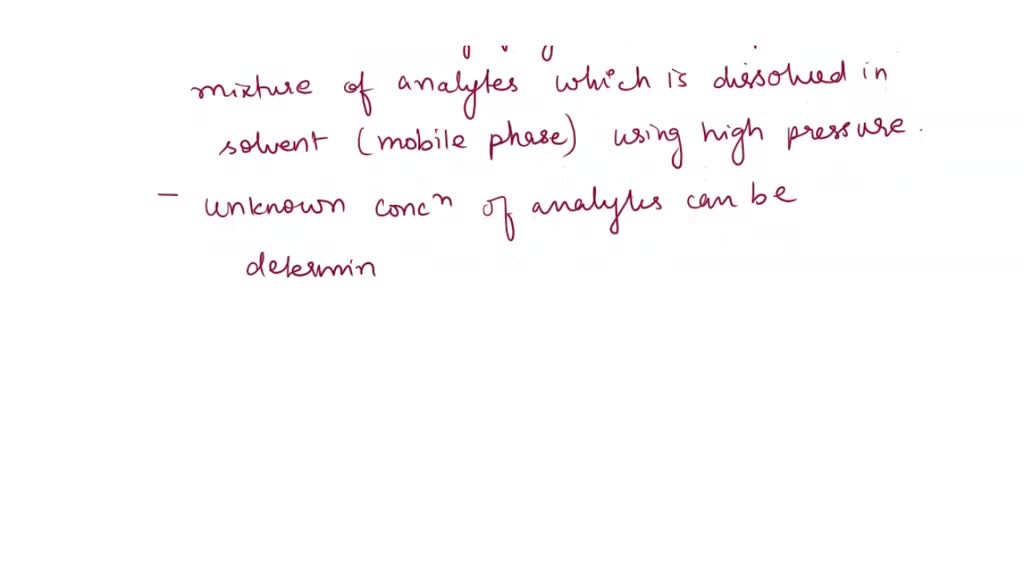 mixture of analytes which is dissolved in
solvent (mobile phase) using high pressure.
- unknown concⁿ of analytes can be
determin